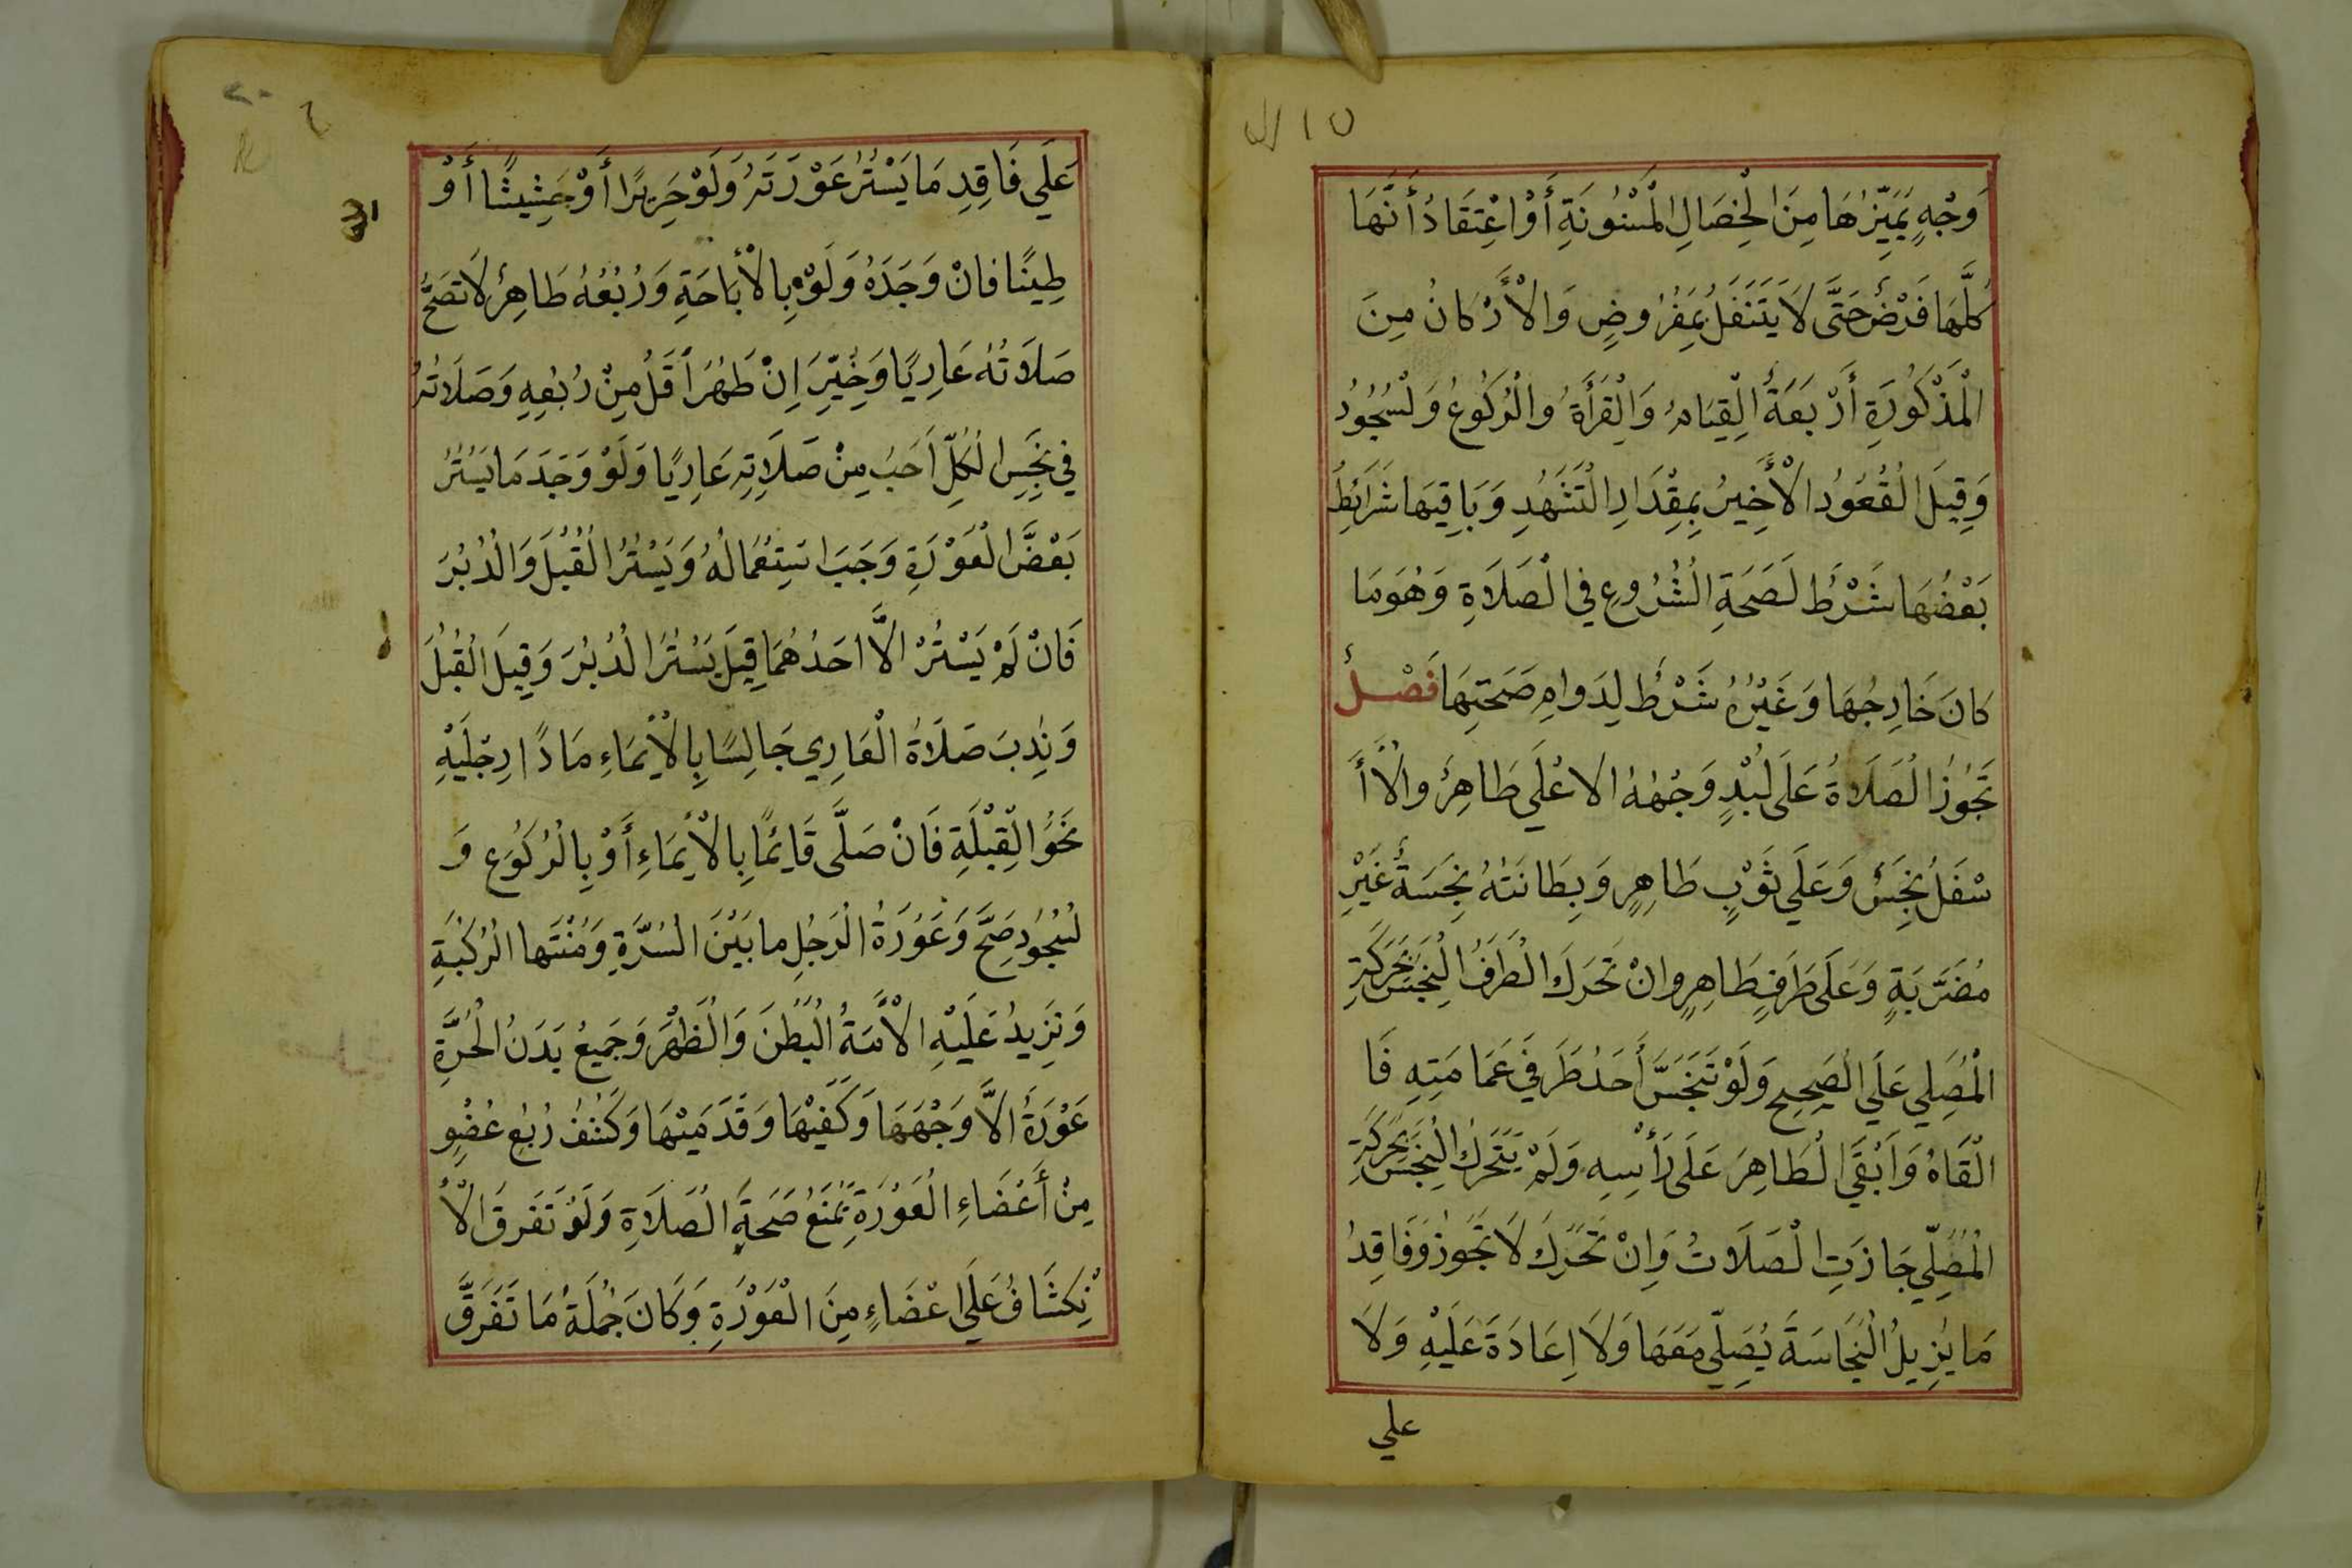 وَجْهٍ يُمَيِّزُهَا مِنَ الْخِصَالِ الْمَسْنُونَةِ أَوْ اعْتِقَادُ أَنَّهَا
كُلَّهَا فَرْضٌ حَتَّى لَا يَتَنَفَّلُ بِمَفْرُوضٍ وَالْأَرْكَانُ مِنَ
الْمَذْكُورَةِ أَرْبَعَةٌ الْقِيَامُ وَالْقِرَأَةُ وَالْرُكُوعُ وَلْسُجُودُ
وَقِيلَ الْقُعُودُ الْأَخِيرُ بِمِقْدَارِ الْتَشَهُدِ وَبَاقِيهَا شَرَائِطُ
بَعْضُهَا شَرْطٌ لَصَحَةِ الْشُرُوعِ فِي الْصَلَاةِ وَهُوَ مَا
كَانَ خَارِجُهَا وَغَيْرُهُ شَرْطٌ لِدَوامِ صَحَتِهَا فَصْلٌ
تَجُوزُ الْصَلَاةُ عَلَى لُبْدٍ وَجْهُهُ الاعْلَي طَاهِرٌ والْأَ
سْفَلُ نَجِسٌ وَعَلَي ثَوْبٍ طَاهِرٍ وَبِطَانَتُهُ نَجِسَةٌ غَيْرِ
مُضَرَّبَةٍ وَعَلَى طَرَفٍ طَاهِرٍ وانْ تَحَرَكَ الْطَرَفُ الْنَجِسُ بِحَرَكَةِ
الْمُصَلِي عَلَي الْصَحِيحِ وَلَوْ تَنَجَّسَ أَحَدُ طَرَفَيْ عَمَامَتِهِ فَا
الْقَاهُ وَابْقَي الْطَاهِرَ عَلَى رَأْسِهِ وَلَمْ يَتَحَرَكْ الْنَجِسُ بِحَرَكَةِ
الْمُصَلِّي جَازَتِ الْصَلَاتُ وَانْ تَحَرَكَ لَا تَجُوزُ وَفَاقِدُ
مَا يُزِيلُ الْنَجَاسَةَ يُصَلِّي مَعَهَا وَلَا اِعَادَةَ عَلَيْهِ وَلَا
علي
عَلَي فَاقِدِ مَا يَسْتُرُ عَوْرَتَهُ وَلَوْ حَرِيرًا أَوْ حَشِيشًا أَوْ
طِينًا فانْ وَجَدَهُ وَلَوْ بِالْأَبَاحَةِ وَرُبْعُهُ طَاهِرٌ لَا تَصَحُّ
صَلَاتُهُ عَارِيًا وَخُيِّرَ اِنْ طَهُرَ اَقَلُ مِنْ رُبْعِهِ وَصَلَاتُهُ
فِي نَجِسِ الْكُلِّ اَحَبُ مِنْ صَلَاتِهِ عَارِيًا وَلَوْ وَجَدَ مَا يَسْتُرُ
بَعْضَ الْعَوْرَةِ وَجَبَ اسْتِعْمَالُهُ وَيَسْتُرُ الْقُبُلَ وَالْدُبُرَ
فَانْ لَمْ يَسْتُرْ الَّا احَدُهُمَا قِيلَ يَسْتُرُ الْدُبُرَ وَقِيلَ الْقُبُلَ
وَنُدِبَ صَلَاةُ الْعَارِي جَالِسًا بِالْأيمَاءِ مَادًا رِجْلَيْهِ
نَحْوَ الْقِبْلَةِ فَانْ صَلَّى قَائِمًا بِالْأيمَاءِ أَوْ بِالْرُكُوعِ وَ
لْسُجُودِ صَحَّ وَعَوْرَةُ الْرَجُلِ مابَيْنَ الْسُرَّةِ وَمُنْتَها الْرُكْبَةِ
وَتَزِيدُ عَلَيْهِ الْأَمَةُ الْبَطْنَ وَالْظَهْرَ وَجَمِيعُ بَدَنُ الْحُرَّةِ
عَوْرَةٌ الَّا وَجْهَهَا وَكَفَيْهَا وَقَدَمَيْهَا وَكَشْفُ رُبْعِ عُضْوٍ
مِنْ أَعْضَاءِ الْعَوْرَةِ يَمْنَعُ صَحَةِ الْصَلَاةِ وَلَوْ تَفَرقَ الْأ
نْكِشَافُ عَلَي اعْضَاءٍ مِنَ الْعَوْرَةِ وَكَانَ جُمْلَةُ مَا تَفَرَقَّ